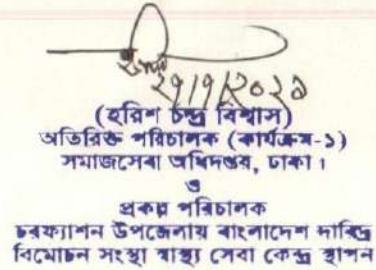 ২৭/৭/২০২১
(হরিশ চন্দ্র বিশ্বাস)
অতিরিক্ত পরিচালক (কার্যক্রম-১)
সমাজসেবা অধিদপ্তর, ঢাকা।
ও
প্রকল্প পরিচালক
চরফ্যাশন উপজেলায় বাংলাদেশ দারিদ্র
বিমোচন সংস্থা স্বাস্থ্য সেবা কেন্দ্র স্থাপন